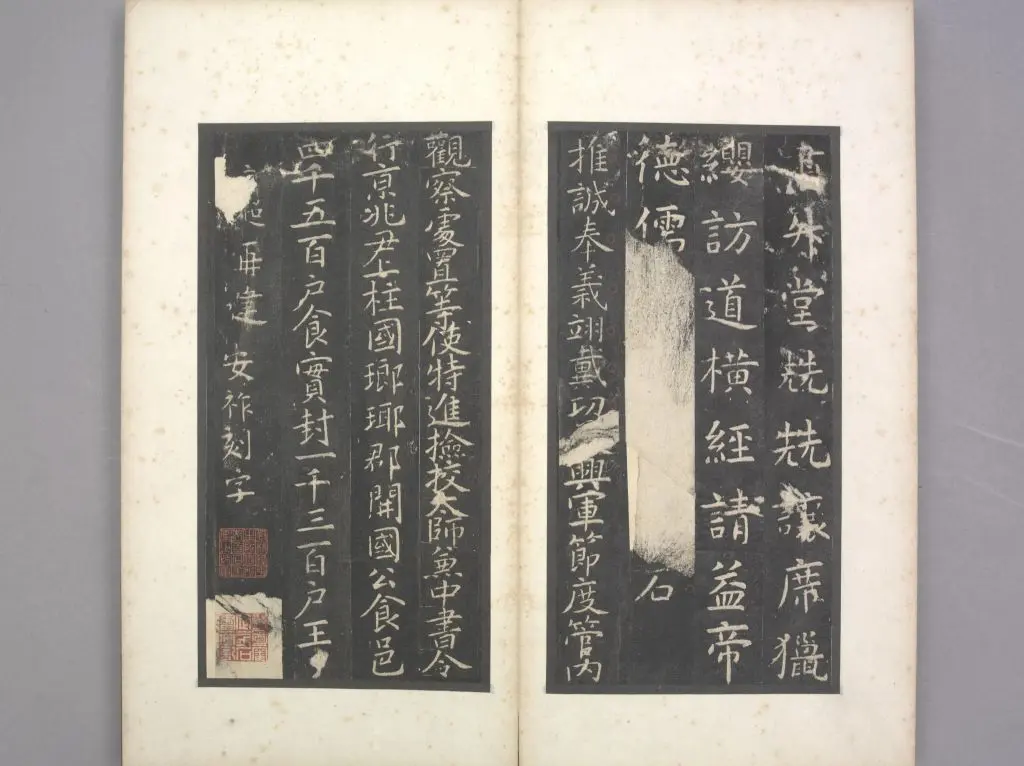 升堂兟兟讓席獵
纓訪道橫經請益帝
德儒 石
推誠奉義翊戴功 興軍節度管內
觀察處置等使特進撿挍太師兼中書令
行京兆尹上柱國瑯瑘郡開國公食邑
四千五百戶食實封一千三百戶王
超再建 安祚刻字